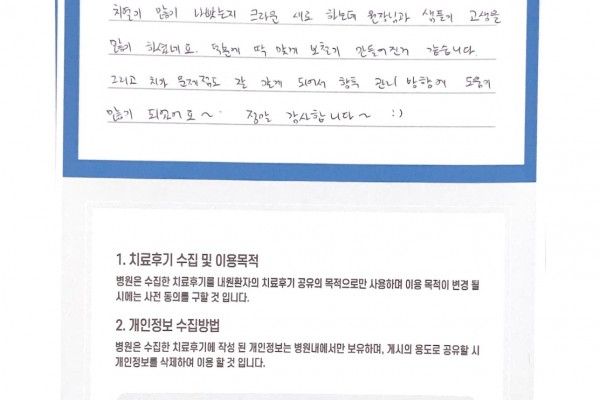 치열이 많이 나빴는지 크라운 새로 하는데 원장님과 쌤들이 고생을
많이 하셨네요. 딱 맞게 보철기 만들어진거 같습니다.
그리고 치아 문제점도 잘 알게 되어서 향후 관리 방향에 도움이
많이 되었어요~ 정말 감사합니다~ :)
1. 치료후기 수집 및 이용목적
병원은 수집한 치료후기를 내원환자의 치료후기 공유의 목적으로만 사용하며 이용 목적이 변경 될
시에는 사전 동의를 구할 것 입니다.
2. 개인정보 수집방법
병원은 수집한 치료후기에 작성 된 개인정보는 병원내에서만 보유하며, 게시의 용도로 공유할 시
개인정보를 삭제하여 이용 할 것 입니다.